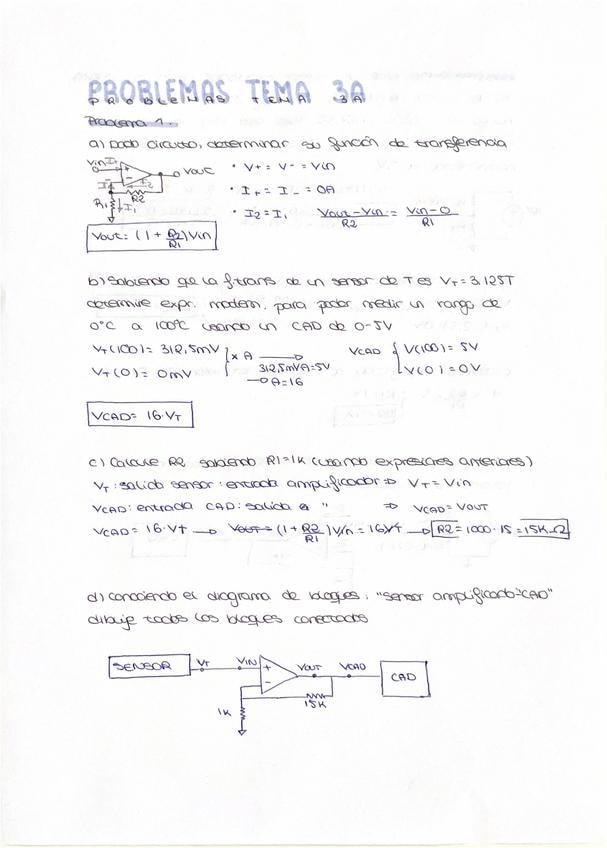 PROBLEMAS TEMA 3A
PROBLEMAS TEMA 3A
Problema 1.
a) Dado circuito, determinar su función de transferencia
Vin I+ + - Vout
I- I2
R1 I1 R2
• V+ = V- = Vin
• I+ = I- = 0A
• I2 = I1 Vout-Vin/R2 = Vin-0/R1
Vout = (1 + R2/R1) Vin
b) Sabiendo qe la f.trans de un sensor de T es VT = 3.125T
determine expr. matem. para poder medir un rango de
0ºC a 100ºC usando un CAD de 0-5V
VT(100) = 312,5mV x A → VCAD { V(100) = 5V
VT(0) = 0mV 312,5mV·A=5V V(0) = 0V
→ A=16
VCAD = 16·VT
c) Calcule R2 sabiendo R1=1K (usando expresiones anteriores)
VT: salida sensor: entrada amplificador ⇒ VT = Vin
VCAD: entrada CAD: salida a " ⇒ VCAD = VOUT
VCAD = 16·VT → Vout = (1 + R2/R1) Vin = 16VT → R2 = 1000·15 = 15KΩ
d) Conociendo el diagrama de bloques: "Sensor amplificado-CAD"
dibuje todos los bloques conectados
SENSOR VT VIN + - VOUT VCAD CAD
1K 15K